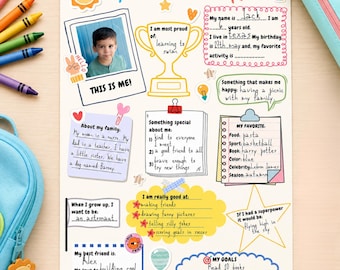 I am most proud of:
learning to swim
My name is Jack. I am
6 years old.
I live in Texas My birthday
is 12th may and my favorite
activity is
THIS IS ME!
Something that makes me
happy: having a picnic
with my family
About my family:
My mom is a nurse. My
dad is a teacher. I have
a little sister. We have
a dog named
Something special
about me:
kind to everyone
I meet
a good friend to all
brave enough to
try new things
MY FAVORITE:
Food: pasta
Sport: basketball
Book: harry potter
Color: blue
Celebrity:
Season: autumn
When I grow up, I
want to be:
an astronaut
I am really good at:
making friends
drawing funny pictures
telling silly jokes
scoring goals in soccer
If I had a superpower
it would be:
flying high in
the sky
My best friend is:
Alex
building cool
MY GOALS:
Read 50 books